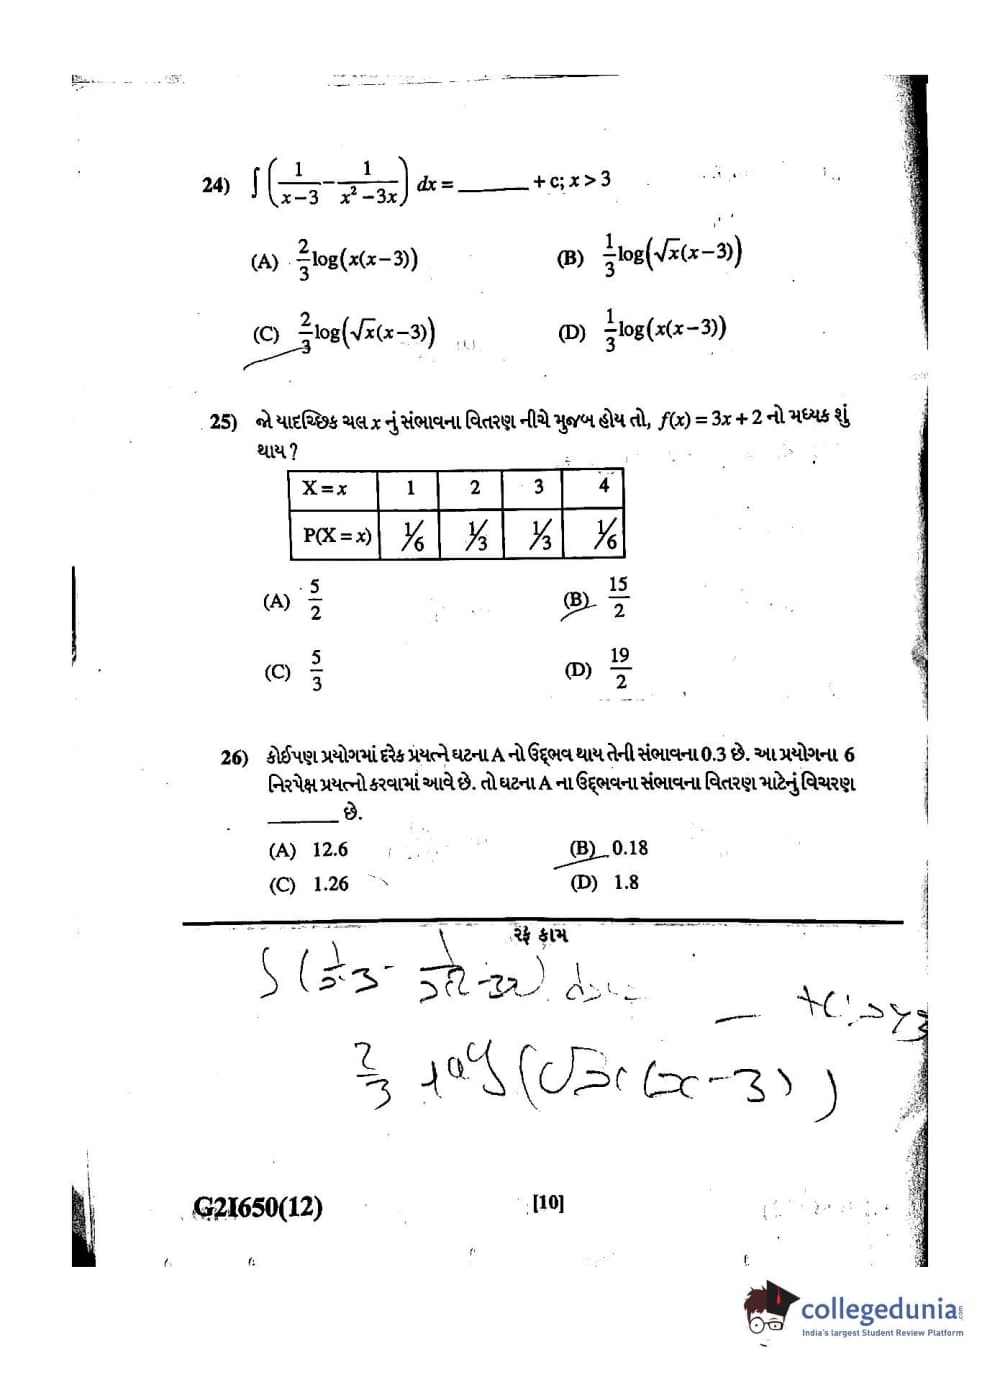 24) ∫ (1/(x−3) − 1/(x² −3x)) dx = ______ + c; x > 3
(A) 2/3 log(x(x−3)) (B) 1/3 log(√x(x−3))
(C) 2/3 log(√x(x−3)) (D) 1/3 log(x(x−3))
25) જો યાદચ્છિક ચલ x નું સંભાવના વિતરણ નીચે મુજબ હોય તો, f(x) = 3x + 2 નો મધ્યક શું
થાય ?
X = x 1 2 3 4
P(X = x) 1/6 1/3 1/3 1/6
(A) 5/2 (B) 15/2
(C) 5/3 (D) 19/2
26) કોઈપણ પ્રયોગમાં દરેક પ્રયત્ને ઘટના A નો ઉદ્ભવ થાય તેની સંભાવના 0.3 છે. આ પ્રયોગના 6
નિરપેક્ષ પ્રયત્નો કરવામાં આવે છે. તો ઘટના A ના ઉદ્ભવના સંભાવના વિતરણ માટેનું વિચરણ
______ છે.
(A) 12.6 (B) 0.18
(C) 1.26 (D) 1.8
રફ કામ
∫ (1/x-3 - 1/x²-3x) dx =
— +c; x>3
2/3 log (√x (x-3))
G2I650(12) [10]
collegedunia.com
India's largest Student Review Platform